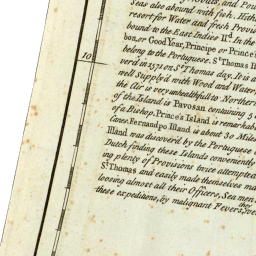 Seas also abound with fish. Hith
resort for Water and fresh Provisi
bound to the East Indies IId. In the
bon, or Good Year, Principe or Prince's
belong to the Portuguese. St. Thomas Il
verd in 1571 on St. Thomas day. It is a
well Supply'd with Wood and Water,
the Air is very unhealthfull to Northern
of the Island is Pavosan containing 5
of a Bishop. Prince's Island is remarkab
Canes. Fernand po Illand is about 30 Mile
10
Illand was discover'd by the Portuguese
Dutch finding these Islands conveniently
ing plenty of Provisions twice attempted
St. Thomas and easily made themselves ma
loosing almost all their Officers, Sea men
these expeditions, by malignant Fevers,